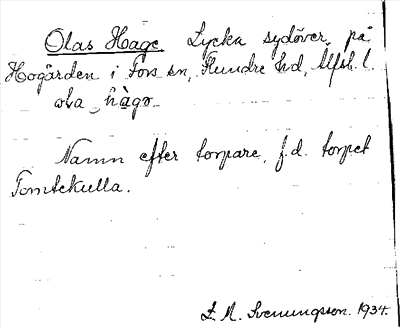 Olas Hage. Lycka sydöver på
Hogården i Fors sn, Flundre hd, Älfsb. l.
ola hàgo
Namn efter torpare, f.d. torpet
Tomtekulla.
L. M. Svenungsson. 1934.